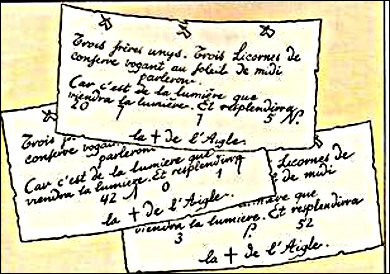 Trois frères unys. Trois Licornes de
conserve vogant au soleil de midi
parleront.
Car c'est de la lumière que
viendra la lumière. Et resplendira
20 7 7 5 N.
la + de l'Aigle.
Trois
conserve vogant
parleront
Car c'est de la lumière que
viendra la lumière. Et resplendira
42 0 1
la + de l'Aigle.
Licornes de
de midi
que
viendra la lumière. Et resplendira
3 52
la + de l'Aigle.